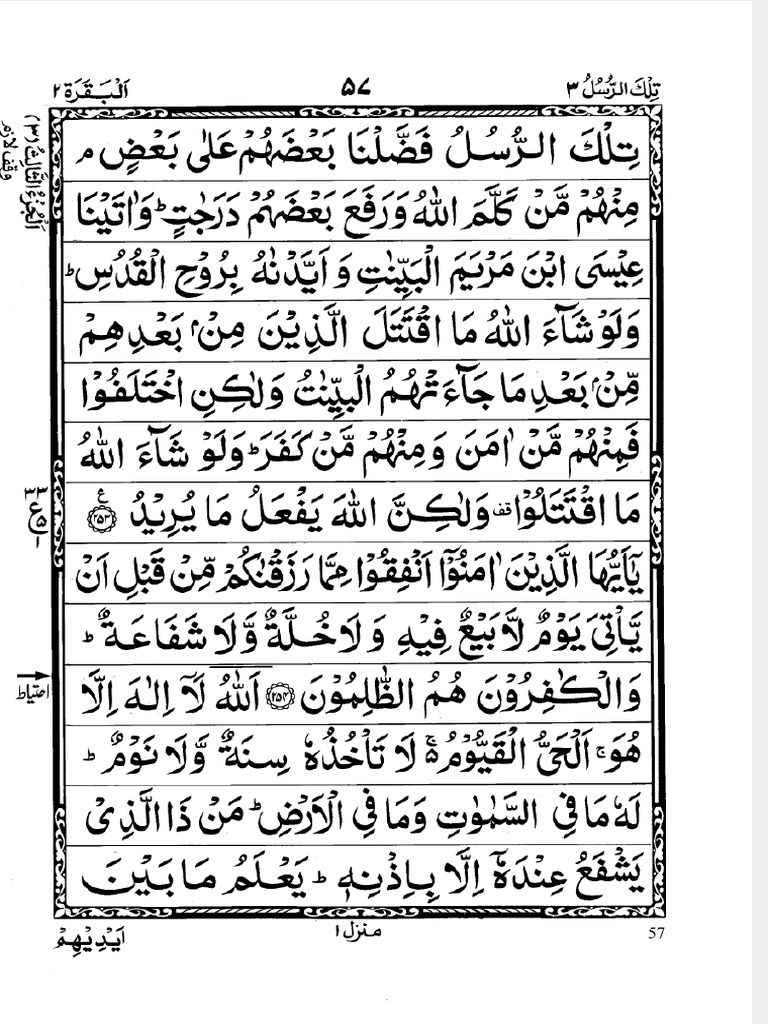 تِلْكَ الرُّسُلُ ٣ ۵۷ اَلْبَقَرَة ٢
اَلْجُزْءُ الثَّالِثُ (٣)
وقف لازم
تِلْكَ الرُّسُلُ فَضَّلْنَا بَعْضَهُمْ عَلٰى بَعْضٍ ۘ
مِنْهُمْ مَّنْ كَلَّمَ اللّٰهُ وَرَفَعَ بَعْضَهُمْ دَرَجٰتٍ ؕ وَاٰتَيْنَا
عِيْسَى ابْنَ مَرْيَمَ الْبَيِّنٰتِ وَ اَيَّدْنٰهُ بِرُوْحِ الْقُدُسِ ؕ
وَلَوْ شَآءَ اللّٰهُ مَا اقْتَتَلَ الَّذِيْنَ مِنْۢ بَعْدِهِمْ
مِّنْۢ بَعْدِ مَا جَآءَتْهُمُ الْبَيِّنٰتُ وَلٰكِنِ اخْتَلَفُوْا
فَمِنْهُمْ مَّنْ اٰمَنَ وَمِنْهُمْ مَّنْ كَفَرَ ؕ وَلَوْ شَآءَ اللّٰهُ
مَا اقْتَتَلُوْا قف وَلٰكِنَّ اللّٰهَ يَفْعَلُ مَا يُرِيْدُ ع ﴿۲۵۳﴾
٣٣ ع ۵ ١
يٰۤاَيُّهَا الَّذِيْنَ اٰمَنُوْۤا اَنْفِقُوْا مِمَّا رَزَقْنٰكُمْ مِّنْ قَبْلِ اَنْ
يَّاْتِىَ يَوْمٌ لَّا بَيْعٌ فِيْهِ وَلَا خُلَّةٌ وَّلَا شَفَاعَةٌ ؕ
وَالْكٰفِرُوْنَ هُمُ الظّٰلِمُوْنَ ﴿۲۵۴﴾ اَللّٰهُ لَاۤ اِلٰهَ اِلَّا
احتیاط
هُوَ ۚ اَلْحَىُّ الْقَيُّوْمُ ۬ۚ لَا تَاْخُذُهٗ سِنَةٌ وَّلَا نَوْمٌ ؕ
لَهٗ مَا فِى السَّمٰوٰتِ وَمَا فِى الْاَرْضِ ؕ مَنْ ذَا الَّذِىْ
يَشْفَعُ عِنْدَهٗۤ اِلَّا بِاِذْنِهٖ ؕ يَعْلَمُ مَا بَيْنَ
57 منزل ١ اَيْدِيْهِمْ